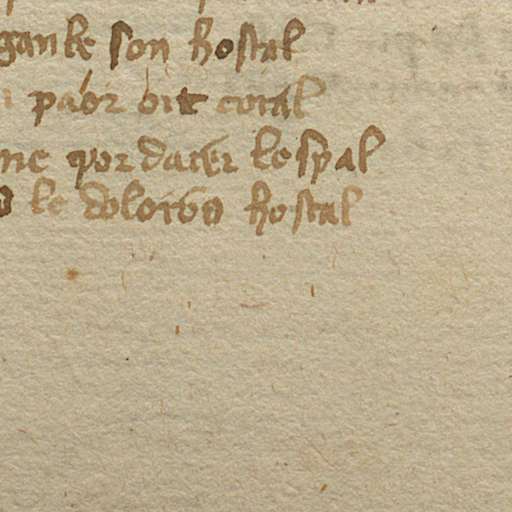 ganke son hostal
paor oit coral
me por dater lespal
le doloiros hostal